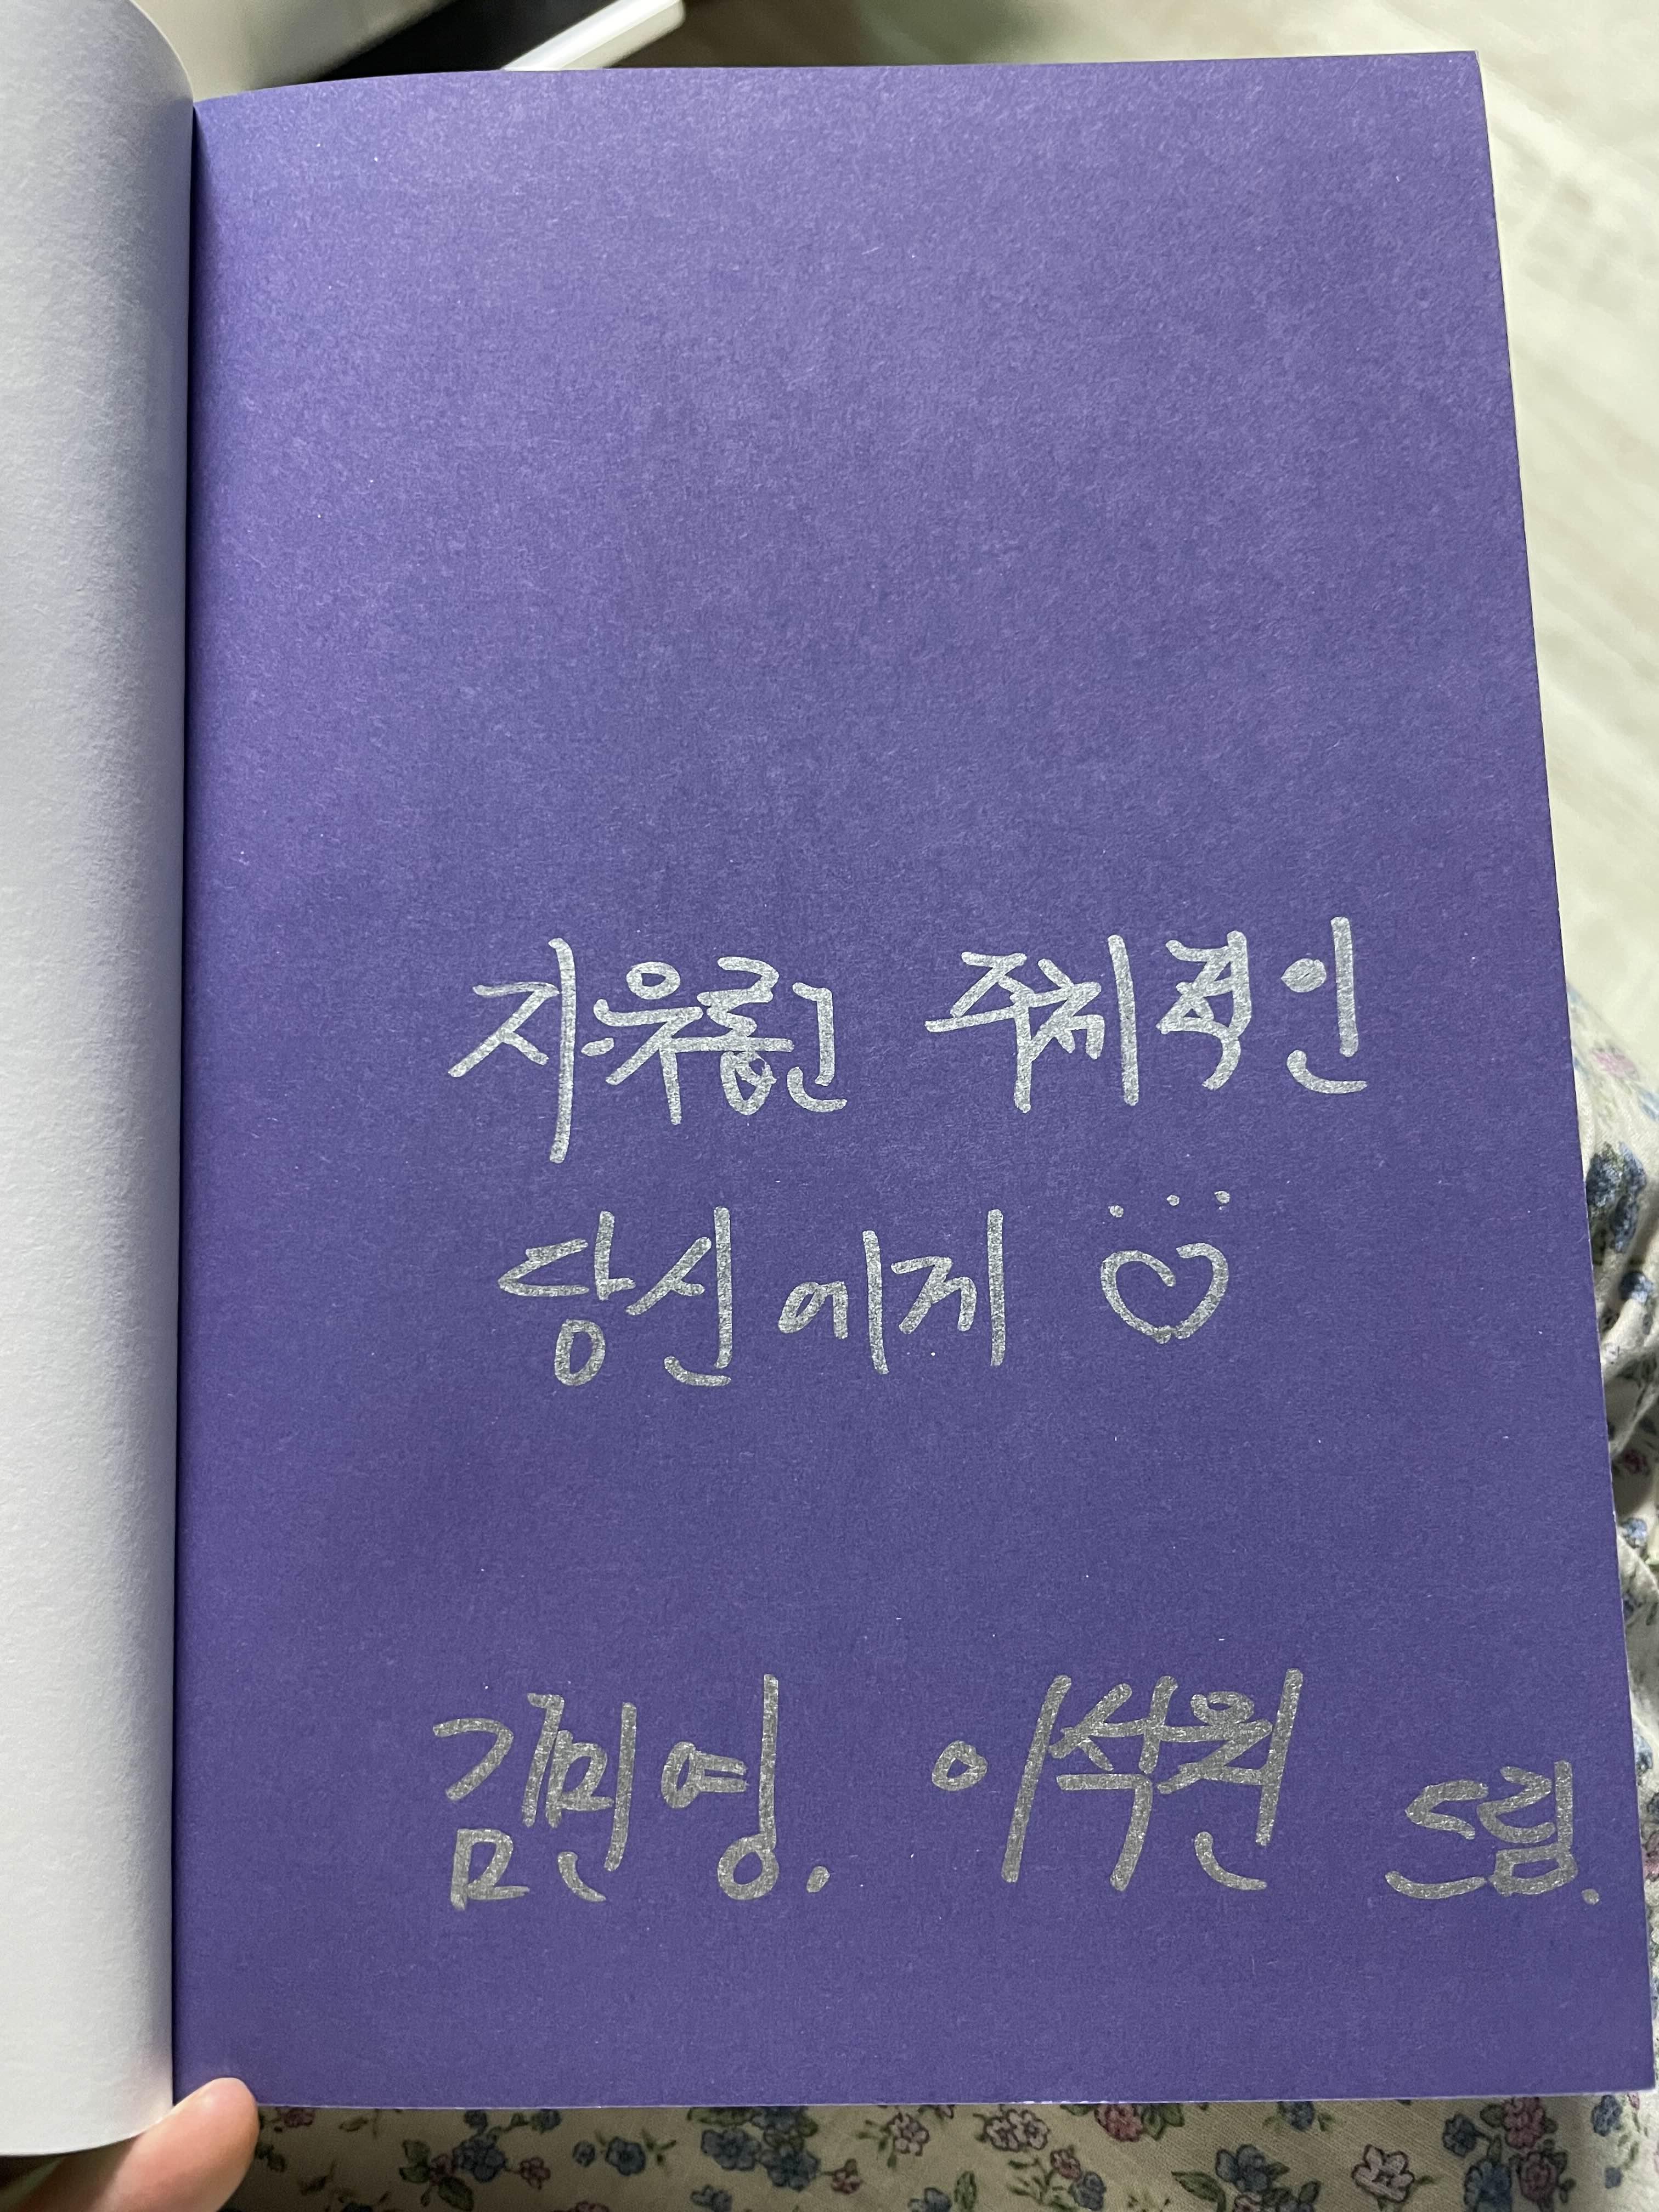 자유롭고 주체적인
당신에게 ♡
김민영. 이석원 드림.